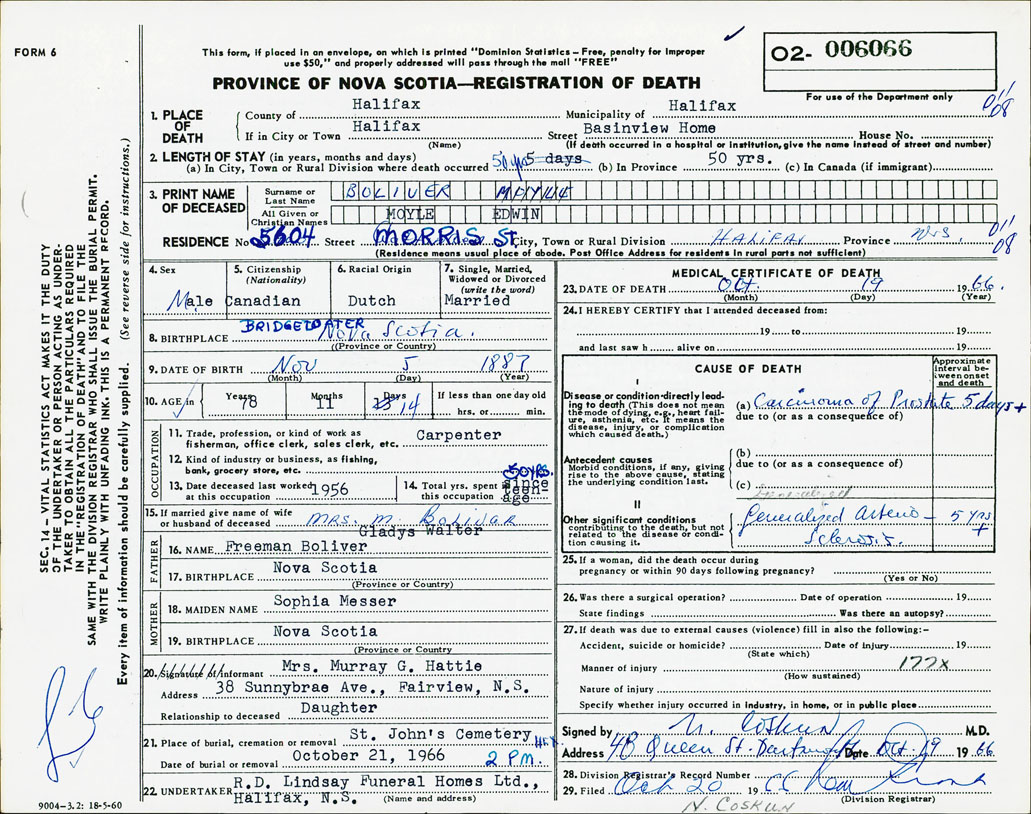 FORM 6
This form, if placed in an envelope, on which is printed "Dominion Statistics – Free, penalty for improper
use $50," and properly addressed will pass through the mail "FREE"
02- 006066
For use of the Department only
PROVINCE OF NOVA SCOTIA—REGISTRATION OF DEATH
08
1. PLACE OF DEATH
County of Halifax Municipality of Halifax
If in City or Town Halifax Street Basinview Home House No.
(Name) (If death occurred in a hospital or institution, give the name instead of street and number)
2. LENGTH OF STAY (in years, months and days)
(a) In City, Town or Rural Division where death occurred 50 yrs 5 days (b) In Province 50 yrs. (c) In Canada (if immigrant)
3. PRINT NAME OF DECEASED
Surname or Last Name BOLIVER
All Given or Christian Names MOYLE EDWIN
RESIDENCE No 5604 Street MORRIS St. City, Town or Rural Division HALIFAX Province N.S.
08
(Residence means usual place of abode. Post Office Address for residents in rural parts not sufficient)
4. Sex Male
5. Citizenship (Nationality) Canadian
6. Racial Origin Dutch
7. Single, Married, Widowed or Divorced (write the word) Married
8. BIRTHPLACE BRIDGEWATER Nova Scotia.
(Province or Country)
9. DATE OF BIRTH Nov 5 1887
(Month) (Day) (Year)
10. AGE in Years 78 Months 11 Days 14 If less than one day old
hrs. or min.
OCCUPATION
11. Trade, profession, or kind of work as fisherman, office clerk, sales clerk, etc. Carpenter
12. Kind of industry or business, as fishing, bank, grocery store, etc.
13. Date deceased last worked at this occupation 1956
14. Total yrs. spent in this occupation 50 YRS. since teen-age
15. If married give name of wife or husband of deceased MRS. M. BOLIVAR
Gladys Walter
FATHER
16. NAME Freeman Boliver
17. BIRTHPLACE Nova Scotia
(Province or Country)
MOTHER
18. MAIDEN NAME Sophia Messer
19. BIRTHPLACE Nova Scotia
(Province or Country)
20. Signature of informant Mrs. Murray G. Hattie
Address 38 Sunnybrae Ave., Fairview, N.S.
Relationship to deceased Daughter
21. Place of burial, cremation or removal St. John's Cemetery HFX
Date of burial or removal October 21, 1966 2 PM.
22. UNDERTAKER R.D. Lindsay Funeral Homes Ltd.,
Halifax, N.S. (Name and address)
MEDICAL CERTIFICATE OF DEATH
23. DATE OF DEATH Oct. 19 1966.
(Month) (Day) (Year)
24. I HEREBY CERTIFY that I attended deceased from:
19 to 19
and last saw h alive on 19
CAUSE OF DEATH
Approximate interval between onset and death
I
Disease or condition directly leading to death (This does not mean the mode of dying, e.g., heart failure, asthenia, etc. It means the disease, injury, or complication which caused death.)
(a) Carcinoma of Prostate 5 days +
due to (or as a consequence of)
Antecedent causes
Morbid conditions, if any, giving rise to the above cause, stating the underlying condition last.
(b)
due to (or as a consequence of)
(c)
Generalized
II
Other significant conditions
contributing to the death, but not related to the disease or condition causing it.
Generalized Arterio- 5 yrs +
Sclerosis.
25. If a woman, did the death occur during
pregnancy or within 90 days following pregnancy?
(Yes or No)
26. Was there a surgical operation? Date of operation 19
State findings Was there an autopsy?
27. If death was due to external causes (violence) fill in also the following:–
Accident, suicide or homicide? Date of injury 19
(State which)
Manner of injury 177x
(How sustained)
Nature of injury
Specify whether injury occurred in industry, in home, or in public place
Signed by N. COSKUN M.D.
Address 48 Queen St. Dartmouth Date Oct. 19 1966
28. Division Registrar's Record Number
29. Filed Oct 20 1966
(Division Registrar)
N. COSKUN
9004-3.2: 18-5-60
SEC. 14 – VITAL STATISTICS ACT MAKES IT THE DUTY
OF THE UNDERTAKER OR PERSON ACTING AS UNDER-
TAKER TO OBTAIN ALL THE PARTICULARS REQUIRED
IN THE "REGISTRATION OF DEATH" AND TO FILE THE
SAME WITH THE DIVISION REGISTRAR WHO SHALL ISSUE THE BURIAL PERMIT.
WRITE PLAINLY WITH UNFADING INK. THIS IS A PERMANENT RECORD.
Every item of information should be carefully supplied. (See reverse side for instructions.)